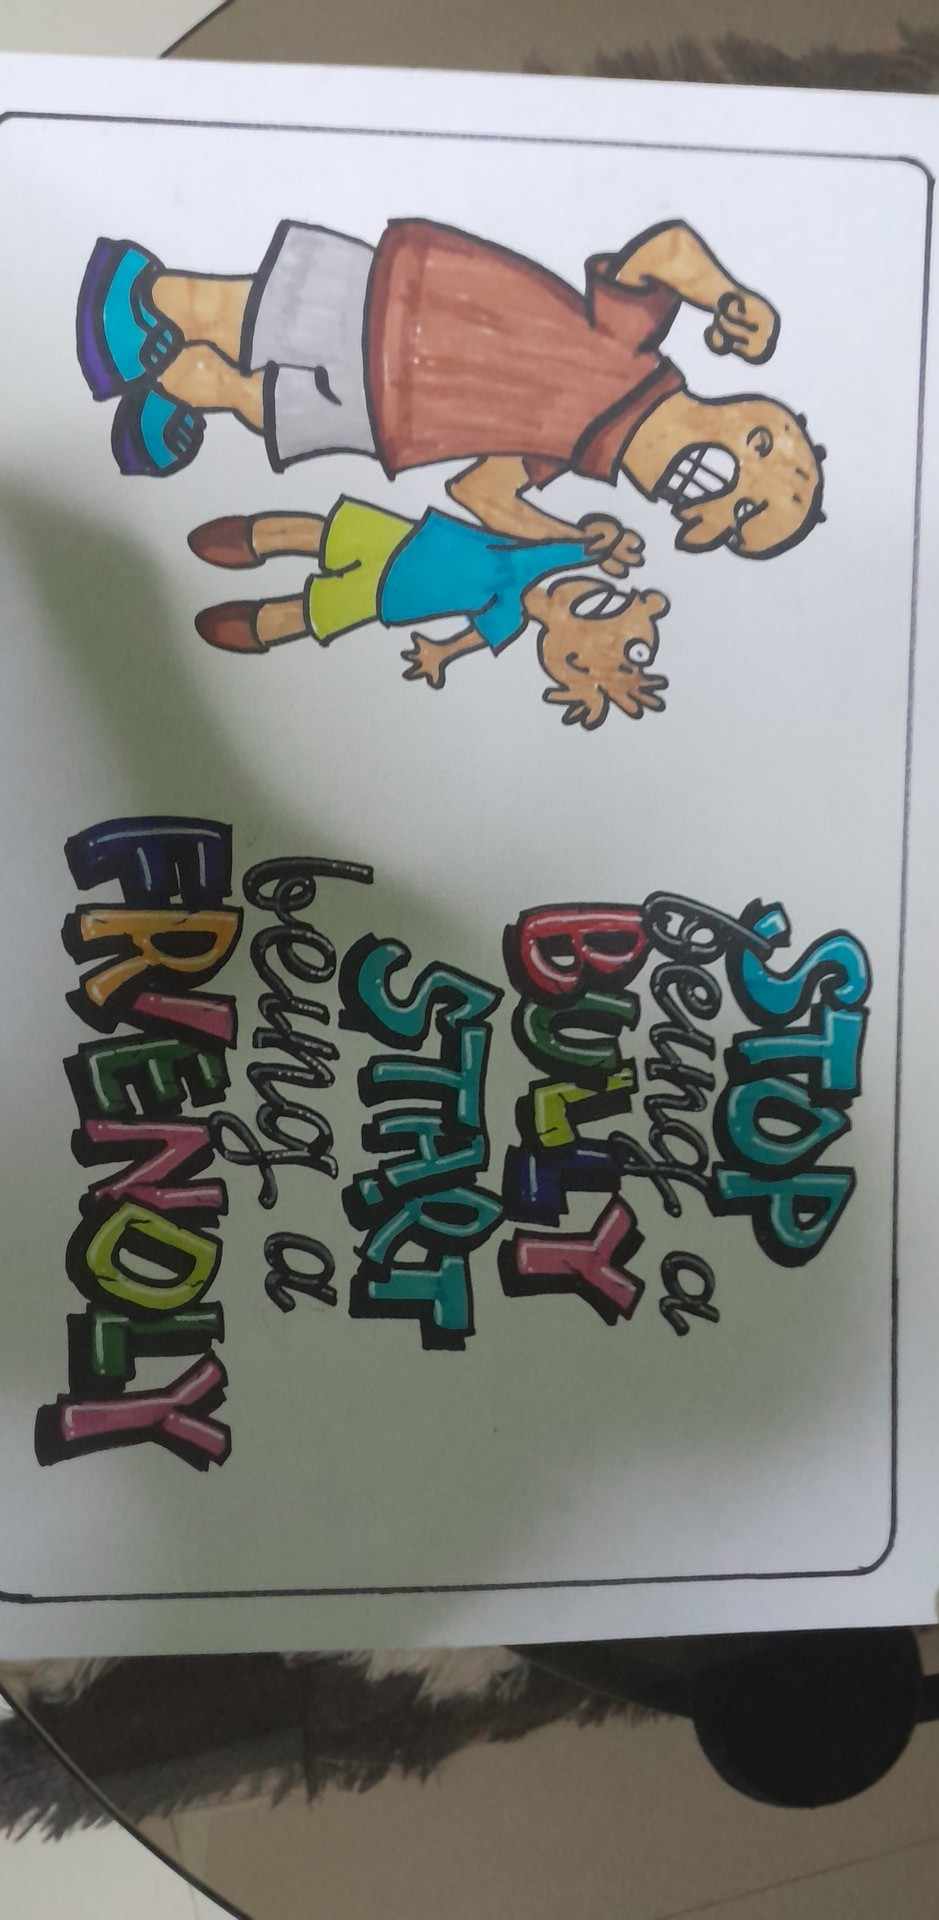 STOP
being a
BULLY
START
being a
FRIENDLY